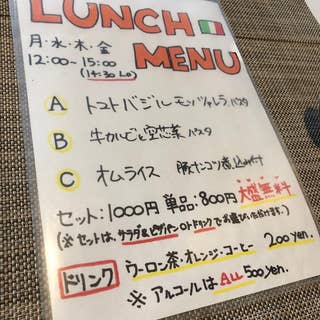 LUNCH
MENU
月・水・木・金
12:00~15:00
(14:30 LO)
A トマトバジルモッツァレラパスタ
B 牛カルビと空芯菜パスタ
C オムライス 豚ナンコツ煮込み付
セット:1000円 単品:800円 大盛無料
(※セットは、サラダ&ピザパン or ドリンクでお選びいただけます。)
ドリンク ウーロン茶・オレンジ・コーヒー 200yen.
※ アルコールは ALL 500yen.